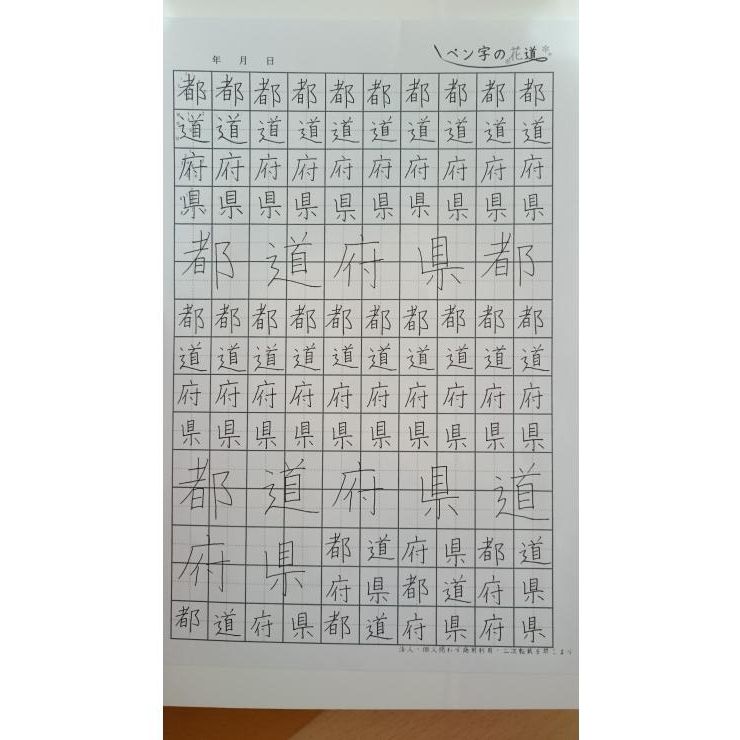 ペン字の花道
年 月 日
都都都都都都都都都都
道道道道道道道道道道
府府府府府府府府府府
県県県県県県県県県県
都道府県都
都都都都都都都都都都
道道道道道道道道道道
府府府府府府府府府府
県県県県県県県県県県
都道府県道
府県
都道府県都道
府県都道府県
都道府県都道府県府県
法人・個人問わず商用利用・二次転載を禁じます